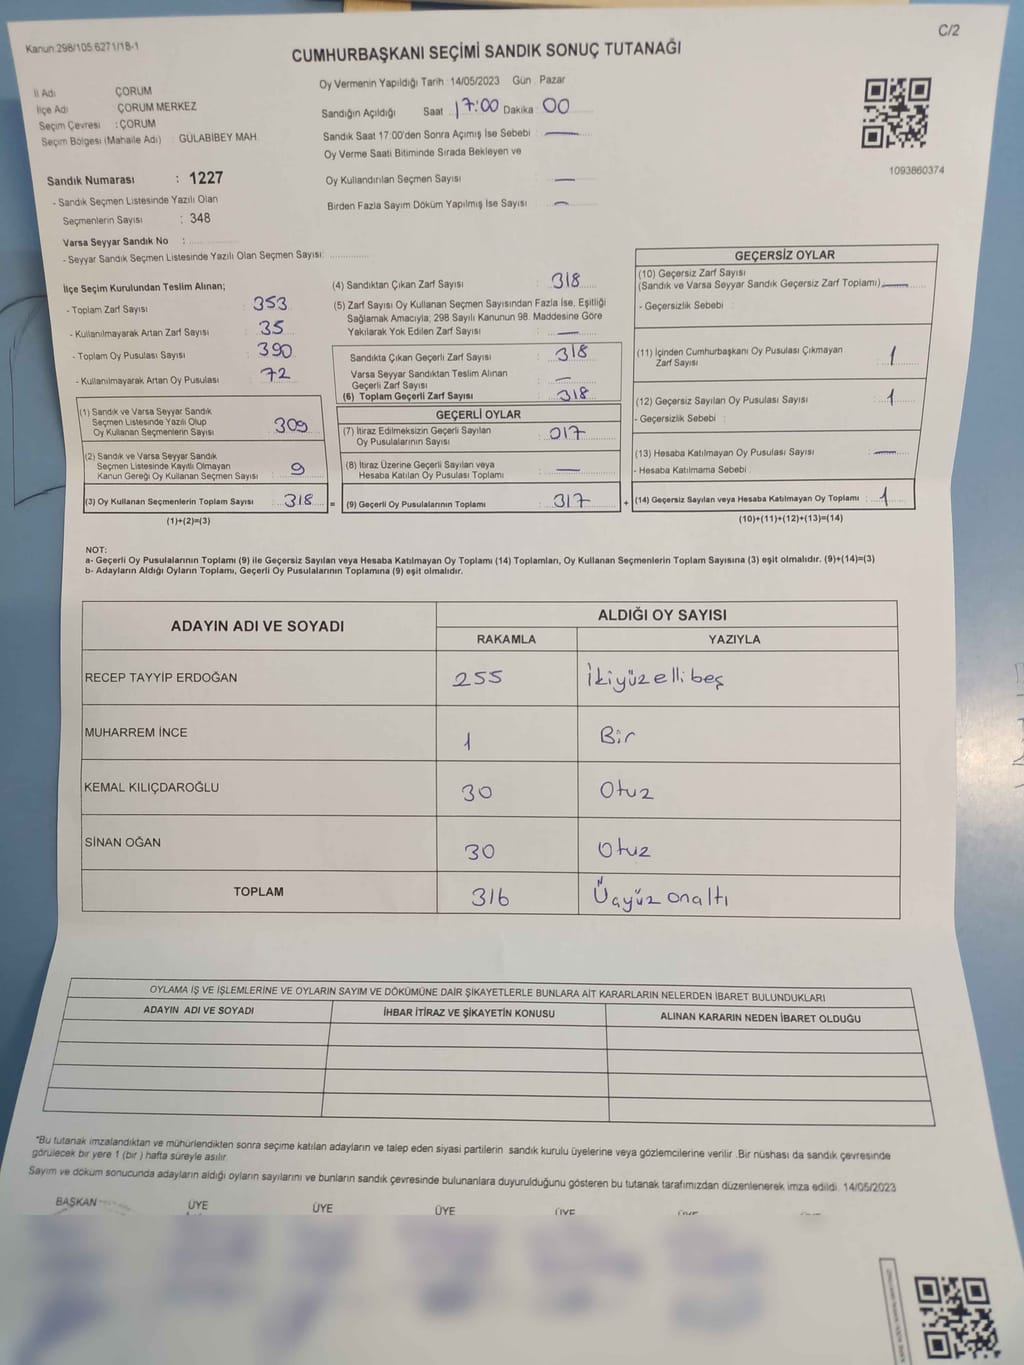 Kanun:298/105:6271/18-1
C/2
CUMHURBAŞKANI SEÇİMİ SANDIK SONUÇ TUTANAĞI
İl Adı ÇORUM
İlçe Adı ÇORUM MERKEZ
Seçim Çevresi : ÇORUM
Seçim Bölgesi (Mahalle Adı) : GÜLABİBEY MAH.
Sandık Numarası : 1227
- Sandık Seçmen Listesinde Yazılı Olan
Seçmenlerin Sayısı : 348
Varsa Seyyar Sandık No :
- Seyyar Sandık Seçmen Listesinde Yazılı Olan Seçmen Sayısı:
Oy Vermenin Yapıldığı Tarih :14/05/2023 Gün Pazar
Sandığın Açıldığı Saat 17:00 Dakika 00
Sandık Saat 17:00'den Sonra Açımış İse Sebebi : —
Oy Verme Saati Bitiminde Sırada Bekleyen ve
Oy Kullandırılan Seçmen Sayısı : —
Birden Fazla Sayım Döküm Yapılmış İse Sayısı : —
1093860374
İlçe Seçim Kurulundan Teslim Alınan;
- Toplam Zarf Sayısı : 353
- Kullanılmayarak Artan Zarf Sayısı : 35
- Toplam Oy Pusulası Sayısı : 390
- Kullanılmayarak Artan Oy Pusulası : 72
(1) Sandık ve Varsa Seyyar Sandık
Seçmen Listesinde Yazılı Olup
Oy Kullanan Seçmenlerin Sayısı : 309
(2) Sandık ve Varsa Seyyar Sandık
Seçmen Listesinde Kayıtlı Olmayan
Kanun Gereği Oy Kullanan Seçmen Sayısı : 9
(3) Oy Kullanan Seçmenlerin Toplam Sayısı : 318
(1)+(2)=(3)
(4) Sandıktan Çıkan Zarf Sayısı : 318
(5) Zarf Sayısı Oy Kullanan Seçmen Sayısından Fazla İse, Eşitliği
Sağlamak Amacıyla; 298 Sayılı Kanunun 98. Maddesine Göre
Yakılarak Yok Edilen Zarf Sayısı : —
Sandıkta Çıkan Geçerli Zarf Sayısı : 318
Varsa Seyyar Sandıktan Teslim Alınan
Geçerli Zarf Sayısı : —
(6) Toplam Geçerli Zarf Sayısı : 318
GEÇERLİ OYLAR
(7) İtiraz Edilmeksizin Geçerli Sayılan
Oy Pusulalarının Sayısı : 017
(8) İtiraz Üzerine Geçerli Sayılan veya
Hesaba Katılan Oy Pusulası Toplamı : —
= (9) Geçerli Oy Pusulalarının Toplamı : 317 +
GEÇERSİZ OYLAR
(10) Geçersiz Zarf Sayısı
(Sandık ve Varsa Seyyar Sandık Geçersiz Zarf Toplamı) —
- Geçersizlik Sebebi :
(11) İçinden Cumhurbaşkanı Oy Pusulası Çıkmayan
Zarf Sayısı : 1
(12) Geçersiz Sayılan Oy Pusulası Sayısı : 1
- Geçersizlik Sebebi :
(13) Hesaba Katılmayan Oy Pusulası Sayısı : —
- Hesaba Katılmama Sebebi :
(14) Geçersiz Sayılan veya Hesaba Katılmayan Oy Toplamı : 1
(10)+(11)+(12)+(13)=(14)
NOT:
a- Geçerli Oy Pusulalarının Toplamı (9) ile Geçersiz Sayılan veya Hesaba Katılmayan Oy Toplamı (14) Toplamları, Oy Kullanan Seçmenlerin Toplam Sayısına (3) eşit olmalıdır. (9)+(14)=(3)
b- Adayların Aldığı Oyların Toplamı, Geçerli Oy Pusulalarının Toplamına (9) eşit olmalıdır.
ADAYIN ADI VE SOYADI
ALDIĞI OY SAYISI
RAKAMLA YAZIYLA
RECEP TAYYİP ERDOĞAN 255 İkiyüzellibeş
MUHARREM İNCE 1 Bir
KEMAL KILIÇDAROĞLU 30 Otuz
SİNAN OĞAN 30 Otuz
TOPLAM 316 Üçyüz onaltı
OYLAMA İŞ VE İŞLEMLERİNE VE OYLARIN SAYIM VE DÖKÜMÜNE DAİR ŞİKAYETLERLE BUNLARA AİT KARARLARIN NELERDEN İBARET BULUNDUKLARI
ADAYIN ADI VE SOYADI İHBAR İTİRAZ VE ŞİKAYETİN KONUSU ALINAN KARARIN NEDEN İBARET OLDUĞU
*Bu tutanak imzalandıktan ve mühürlendikten sonra seçime katılan adayların ve talep eden siyasi partilerin sandık kurulu üyelerine veya gözlemcilerine verilir .Bir nüshası da sandık çevresinde
görülecek bir yere 1 (bir ) hafta süreyle asılır.
Sayım ve döküm sonucunda adayların aldığı oyların sayılarını ve bunların sandık çevresinde bulunanlara duyurulduğunu gösteren bu tutanak tarafımızdan düzenlenerek imza edildi. 14/05/2023
BAŞKAN ÜYE ÜYE ÜYE ÜYE